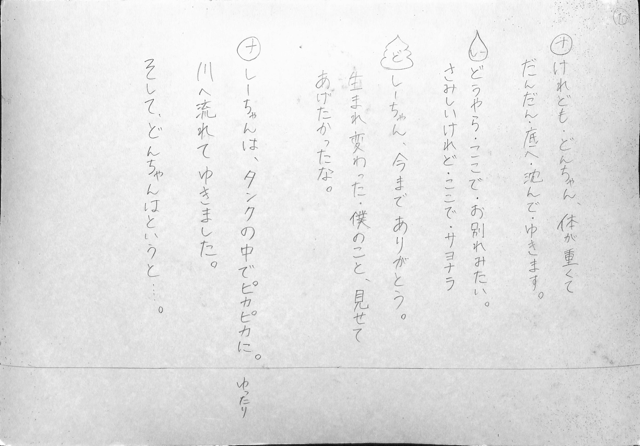 ⑩
ナ けれども・どんちゃん、体が重くて
だんだん・底へ・沈んで・ゆきます。
し どうやら・ここで・お別れみたい。
さみしいけれど・ここで・サヨナラ
ど しーちゃん、今まで ありがとう。
生まれ変わった・僕のこと、見せて
あげたかったな。
ナ しーちゃんは、タンクの中でピカピカに。 ゆったり
川へ流れて ゆきました。
そして、どんちゃんはというと…。